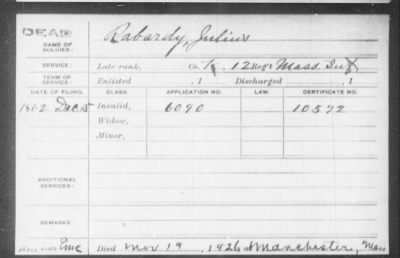 DEAD
NAME OF SOLDIER: Rabardy, Julius
SERVICE: Late rank, Co. , 12 Reg't Mass. Inf
TERM OF SERVICE: Enlisted , 1 Discharged , 1
DATE OF FILING. CLASS. APPLICATION NO. LAW. CERTIFICATE NO.
1862 Dec 15 Invalid, 6090 10572
Widow,
Minor,
ADDITIONAL SERVICES:
REMARKS:
Died Nov. 19, 1926 at Manchester, Mass